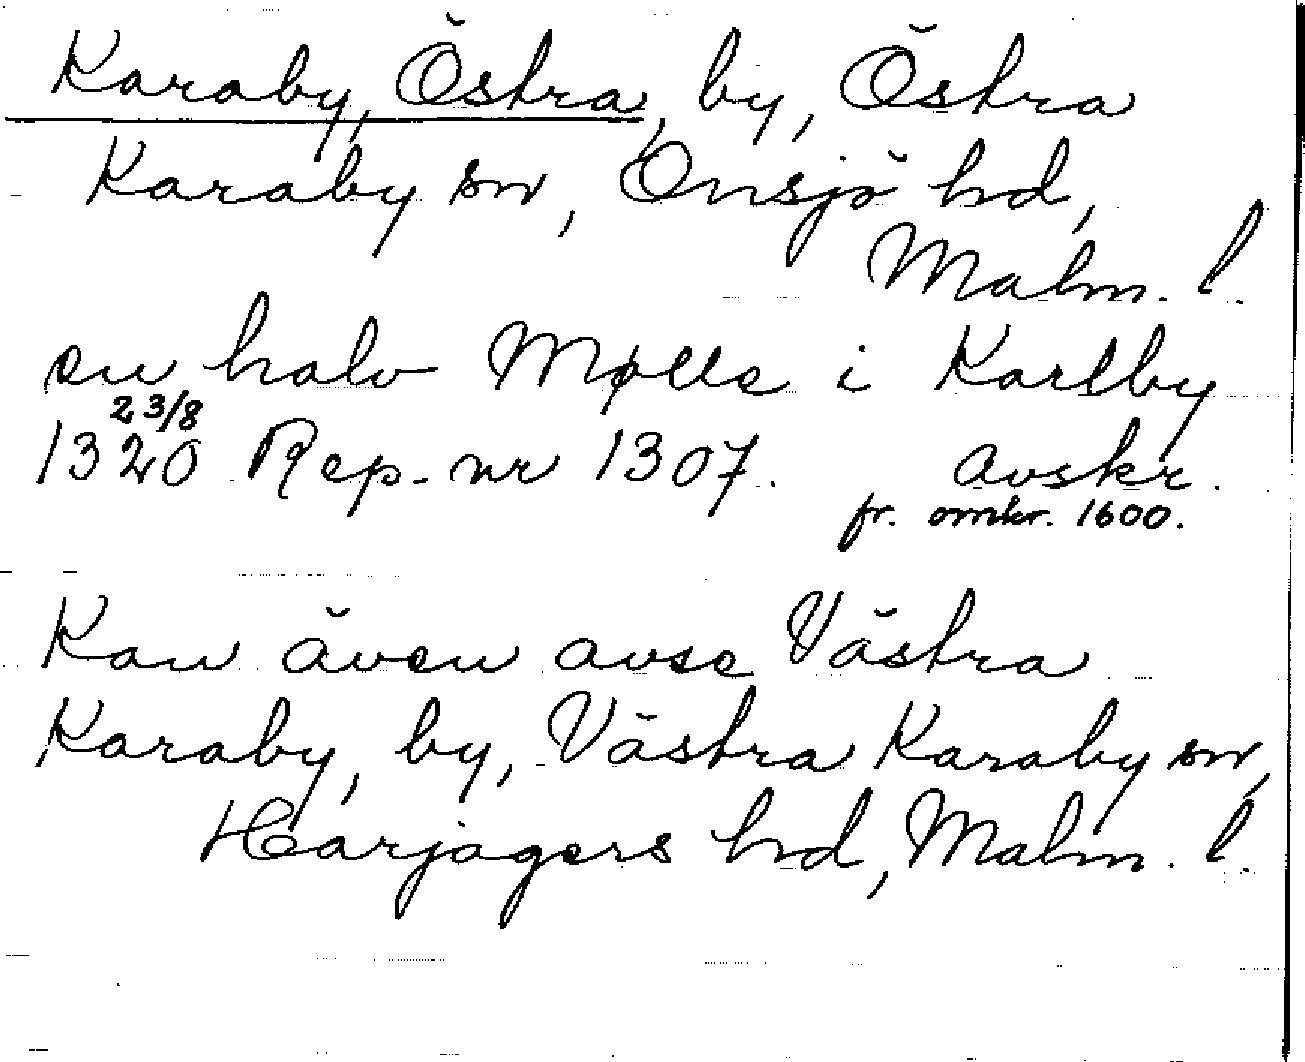 Karaby, Östra, by, Östra
Karaby sn, Onsjö hd,
Malm. l.
en halv Mølle i Karlby
23/8
1320 Rep. nr 1307. avskr.
fr. omkr. 1600.
Kan även avse Västra
Karaby, by, Västra Karaby sn,
Harjagers hd, Malm. l.